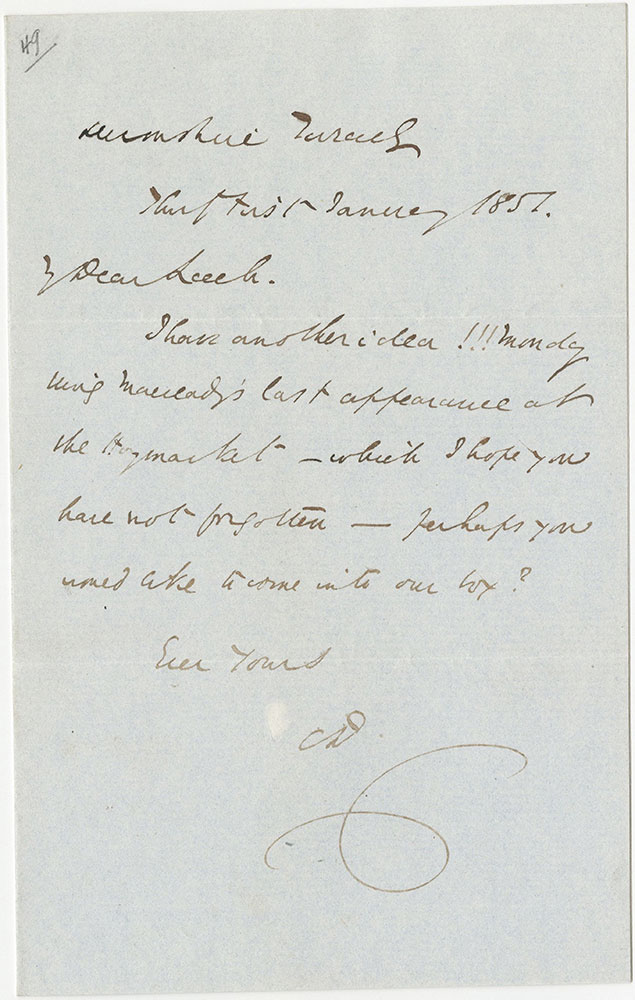 49
Devonshire Terrace
Thirty First January 1851.
My Dear Leech.
I have another idea !!! Monday
being Macready's last appearance at
the Haymarket – which I hope you
have not forgotten — perhaps you
would like to come into our box?
Ever Yours
CD